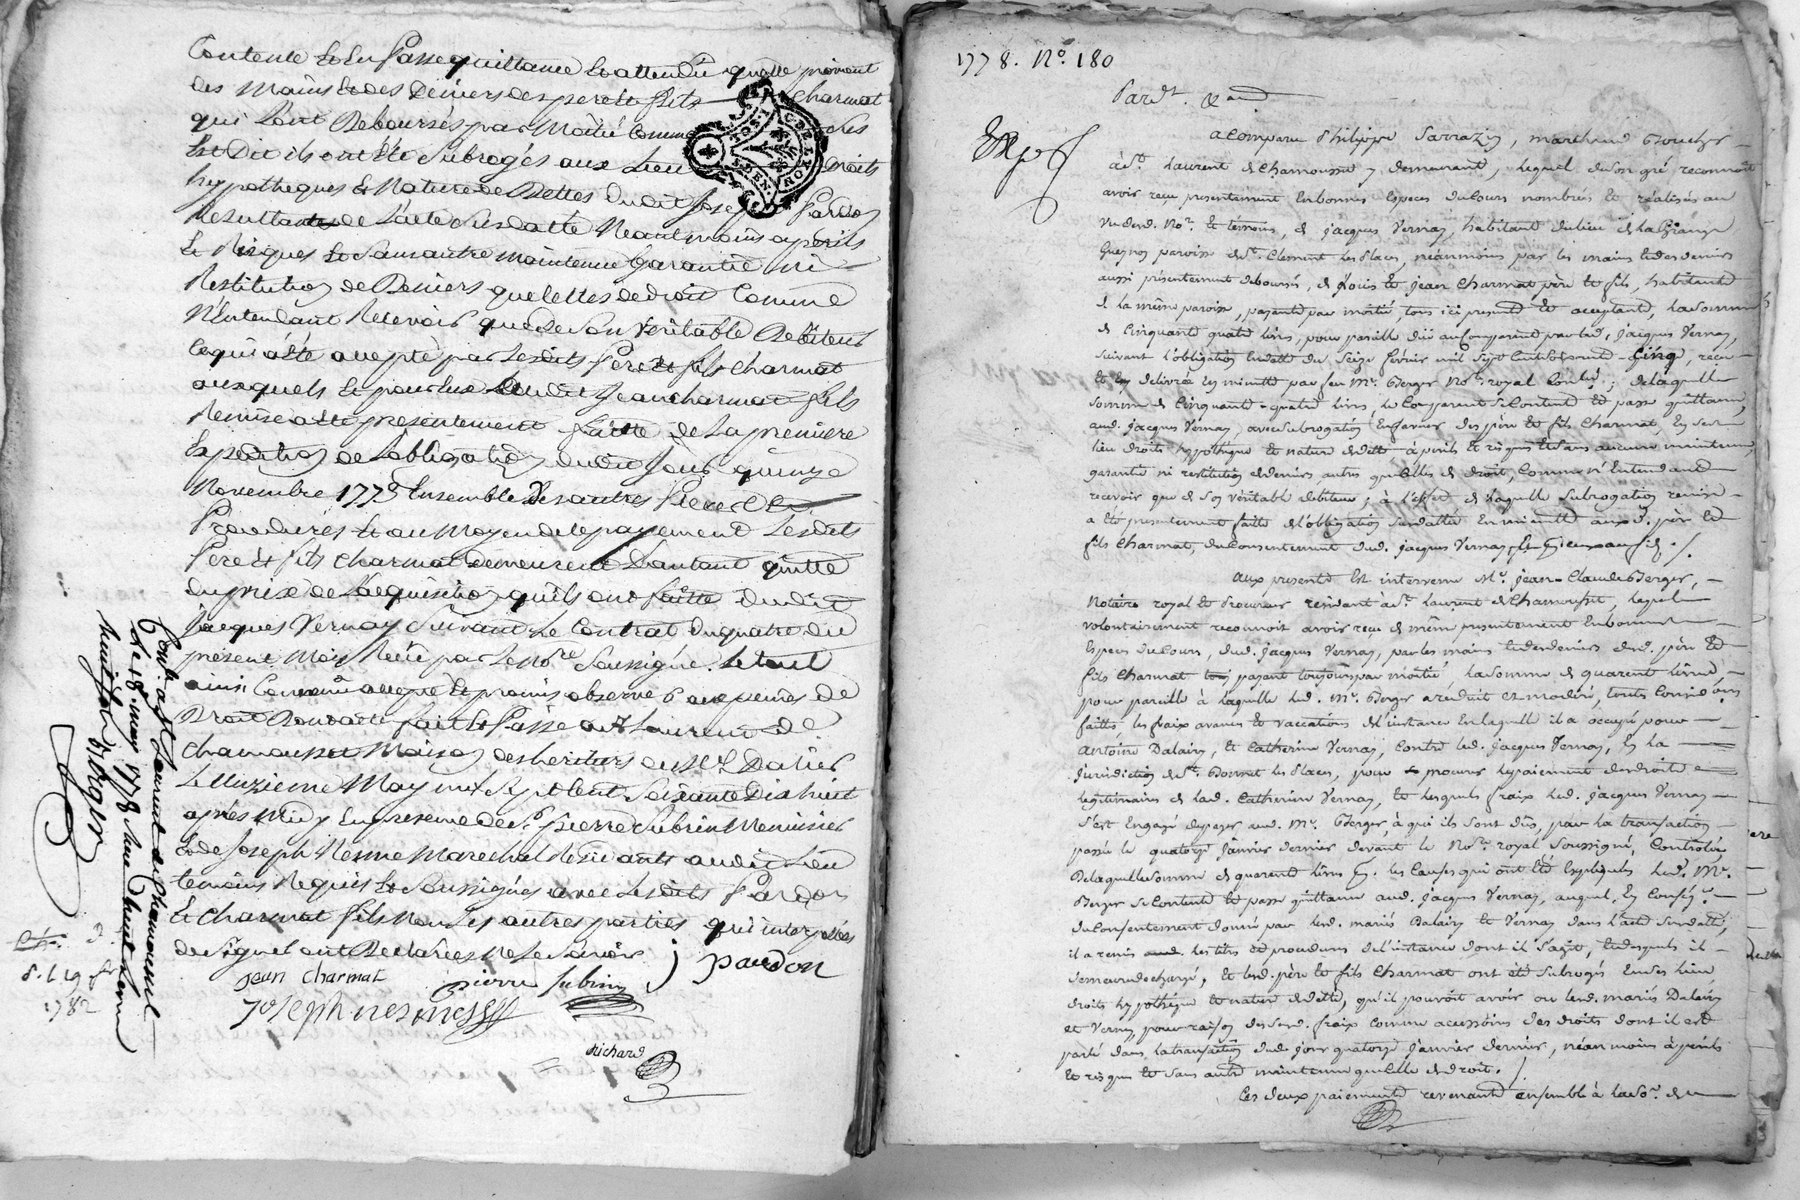 Contente Et En passe quittance Et attendu quelle provient
des Mains Et des Deniers des pere Et fils Charmat
qui Sont Deboursés par Moitié Comme
Est Dit ils ont Eté Subrogés aux Lieu Droits
hypotheques Et Nature de Dettes Dudit Joseph Pardon
Resultantes de L'acte Susdatté Neantmoins a perils
Et Risques Et Sans autre Maintenue Garantie ni
Restitution de Deniers que Celles de droit Comme
N'Entendant Recevoir que de Son Veritable Debiteur
Ce qui a été accepté par Lesdits Pere Et fils Charmat
auxquels Et pour Eux audit Jean Charmat fils
Remise a été presentement faitte de La premiere
Expedition de L'obligation dudit Jour quinze
Novembre 177 Ensemble Des autres Pieces Et
Procedures Et au Moyen de Ce payement Lesdits
Pere Et fils Charmat demeurent D'autant quitte
du prix de L'acquisition qu'ils ont faitte Dudit
Jacques Vernay Suivant Le Contrat Du quatre Du
present Mois Reçu par Le No.re Soussigné. Le tout
ainsi Convenu accepté Et promis observé aux peines de
Droit Dont acte fait Et Passé a St Laurent de
Chamousset Maison des heritiers de Mr. Dalier
Le Onzieme May mil Sept Cent Soixante Dix huit
après Midy En presence de Sr. pierre Subrin Menuisier
Et de Joseph Nesme Marechal Residants audit Lieu
temoins Requis Et Soussignés avec Lesdits Pardon
Et Charmat fils Non Les autres parties qui interpellés
de Signer ont Declarées Ne Le Savoir
jean charmat pierre Subrin pardon
Joseph nesme
Richard
Conlé. a St Laurent de Chamousset
le 18 may 1778 Reçu
Berger
1782
1778. No. 180
Pardt.
Exp
a Comparu Philippe Sarrazin, marchand Boucher
à St. Laurent de Chamousset y demeurant, lequel de son gré reconnoit
avoir reçu presentement En bonnes Especes du Cours nombrés Et réalisés au
vu dud. No.re Et témoins, de jacques Vernay, habitant du lieu de la Grange
paroisse de St. Clément les places, néanmoins par les mains Et des deniers
aussi présentement déboursés, de Louis Et jean Charmat père Et fils, habitants
de la même paroisse, payants par moitié, tous ici presents Et acceptants, la somme
de Cinquante quatre livres, pour pareille due au Comparant par led. Jacques Vernay,
suivant l'obligation En datte du seize fevrier mil sept Cent soixante-Cinq, reçue
Et Expédiée En minutte par feu Mr. Berger No.re royal Conlé.; de laquelle
somme de Cinquante-quatre livres, le Comparant se Contente Et passe quittance,
aud. jacques Vernay, avec subrogation En faveur des père Et fils Charmat, En ses
lieu droits hypothèque Et nature de dette à périls Et risques Et sans aucune maintenue,
garantie ni restitution de deniers autres que Celles de droit, Comme n'Entendant
recevoir que de son véritable débiteur; à l'effet de laquelle subrogation remise
a été presentement faitte de l'obligation susdattée En minutte auxd. père Et
fils Charmat, du Consentement dud. jacques Vernay,
Aux presentes Est intervenu Mr. jean-Claude Berger,
Notaire royal Et Procureur résidant à St. Laurent de Chamousset, lequel
volontairement reconnoit avoir reçu de même presentement En bonnes
Especes du Cours, dud. Jacques Vernay, par les mains Et des deniers desd. père Et
fils Charmat payant toujours par moitié, la somme de quarente livres,
pour pareille à laquelle led. Mr. Berger a reduit Et moderé, toutes Considérations
faites, les fraix avances Et vaccations de l'instance En laquelle il a occupé pour
Antoine Dalairy, Et Catherine Vernay, Contre led. Jacques Vernay, En la
jurisdiction de St. Bonnet les Places, pour procurer le paiement des droits
legitimaires de lad. Catherine Vernay, Et lesquels fraix led. Jacques Vernay
s'est Engagé de payer aud. Mr. Berger, à qui ils sont dûs, par la transaction
passée le quatorze Janvier dernier devant le No.re royal Soussigné, Controlée
De laquelle somme de quarente livres les Causes qui ont été Expliqués led. Mr.
Berger se Contente Et passe quittance aud. Jacques Vernay, auquel, En Conseq.
du Consentement donné par lesd. mariés Dalairy Et Vernay dans l'acte susdatté,
il a remis les titres Et procedures de l'instance dont il s'agit, Et desquels il
demeure dechargé, Et lesd. père Et fils Charmat ont été subrogés En des lieu
droits hypothèque Et nature de dette, qu'il pouvoit avoir ou lesd. mariés Dalairy
et Vernay pour raison desd. fraix comme accessoires des droits dont il est
parlé dans la transaction dud. jour quatorze Janvier dernier, néanmoins à périls
Et risques Et sans autre maintenue que Celle de droit.
Ces deux paiements revenants ensemble à la so.e de